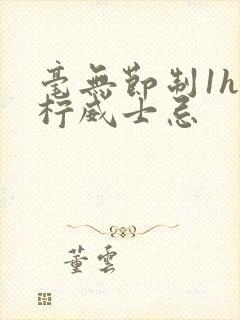 毫無節制1h
柠威士忌
董雲